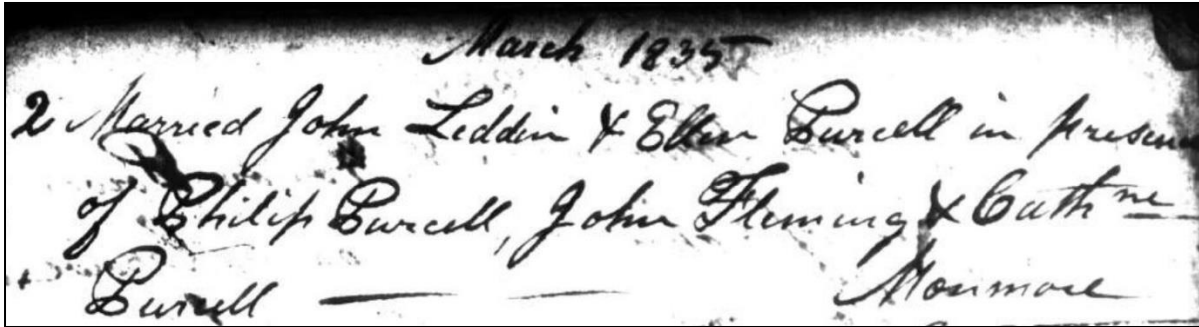 March 1835
2 Married John Leddin & Ellen Purcell in presence
of Philip Purcell, John Fleming & Cathne
Purcell